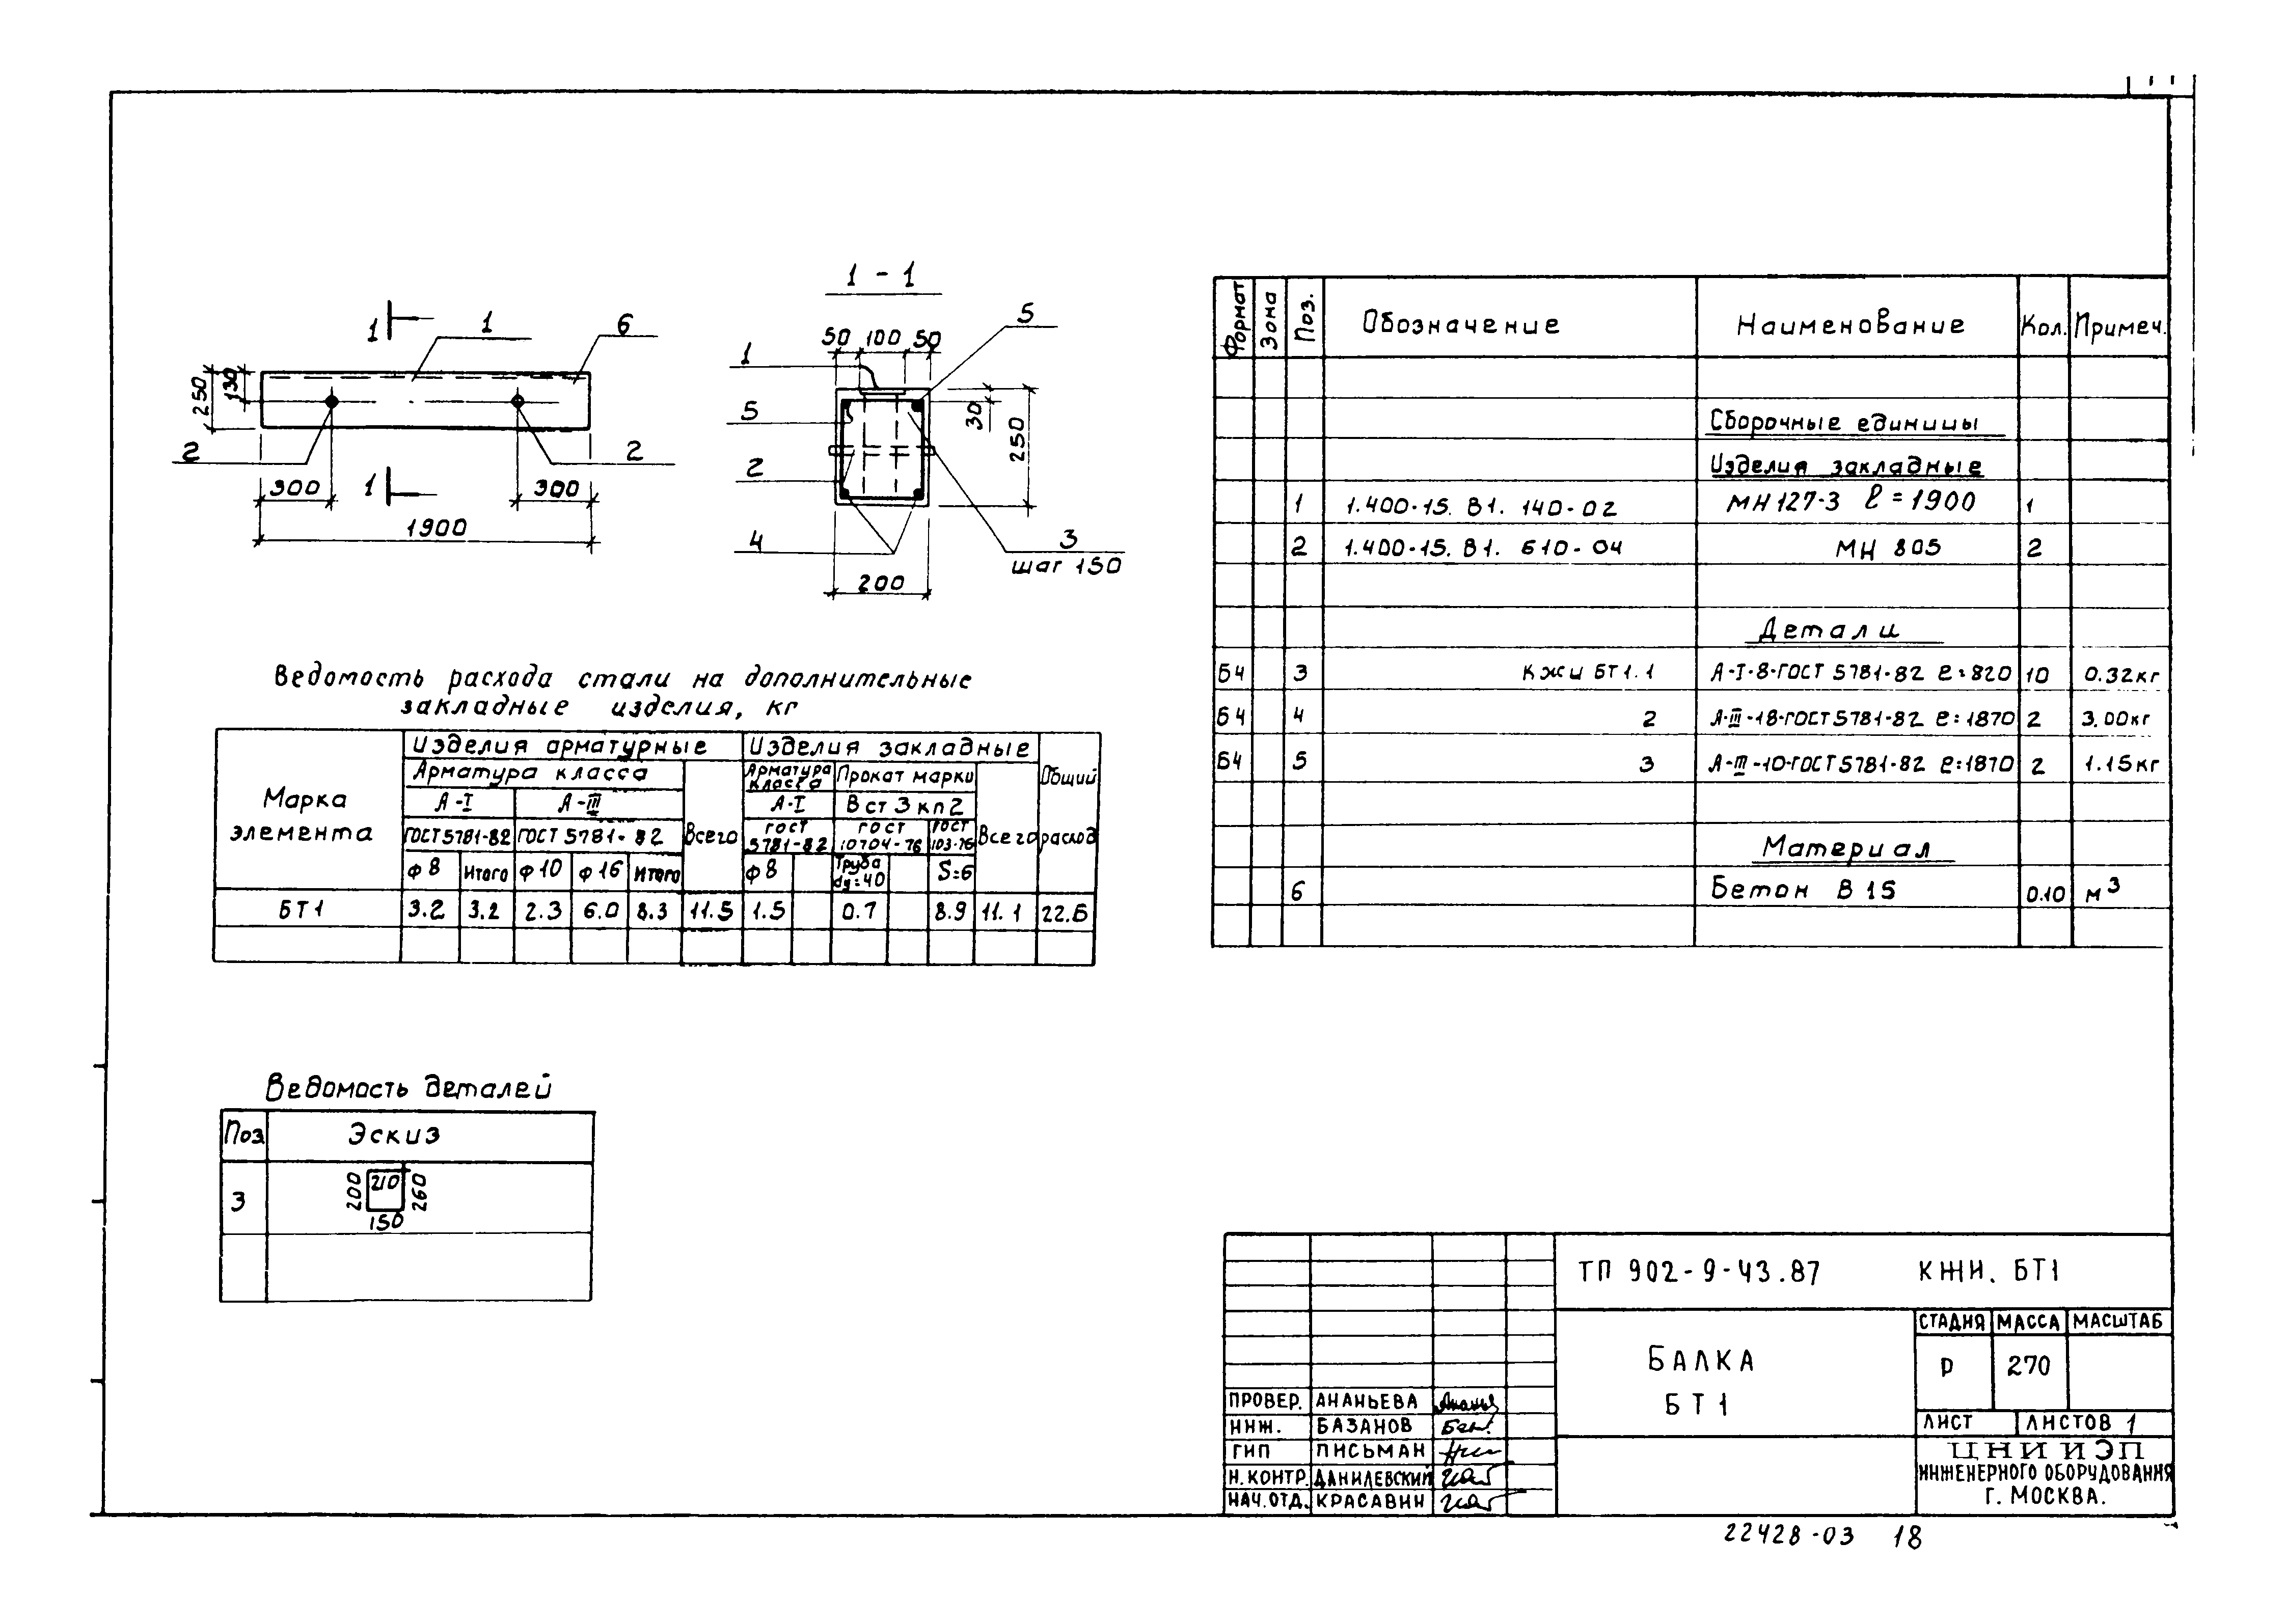 1 - 1
1
1
6
250
130
2
2
300
1
300
1900
50 100 50
5
1
5
30
250
2
4
3
шаг 150
200
Ведомость расхода стали на дополнительные
закладные изделия, кг
Марка элемента
Изделия арматурные
Изделия закладные
Общий расход
Арматура класса
Всего
Арматура класса
Прокат марки
Всего
А-I
А-III
А-I
В ст 3 кп2
ГОСТ 5781-82
ГОСТ 5781-82
ГОСТ 5781-82
ГОСТ 10704-76
ГОСТ 103-76
Ф8 Итого Ф10 Ф16 Итого Ф8 Труба dу=40 S=6
БТ1 3.2 3.2 2.3 6.0 8.3 11.5 1.5 0.7 8.9 11.1 22.6
Ведомость деталей
Поз Эскиз
3
200 210 260
150
Формат Зона Поз. Обозначение Наименование Кол. Примеч.
Сборочные единицы
Изделия закладные
1 1.400-15. В1. 140-02 МН127-3 ℓ=1900 1
2 1.400-15. В1. 610-04 МН 805 2
Детали
Б4 3 КЖИ БТ1.1 А-I-8-ГОСТ 5781-82 ℓ=820 10 0.32кг
Б4 4 2 А-III-18-ГОСТ 5781-82 ℓ=1870 2 3.00кг
Б4 5 3 А-III-10-ГОСТ 5781-82 ℓ=1870 2 1.15кг
Материал
6 Бетон В15 0.10 м³
ТП 902-9-43.87 КЖИ. БТ1
БАЛКА
БТ1
СТАДИЯ МАССА МАСШТАБ
Р 270
ЛИСТ ЛИСТОВ 1
ЦНИИЭП
ИНЖЕНЕРНОГО ОБОРУДОВАНИЯ
Г. МОСКВА.
ПРОВЕР. АНАНЬЕВА
ИНЖ. БАЗАНОВ
ГИП ПИСЬМАН
Н.КОНТР. ДАНИЛЕВСКИЙ
НАЧ.ОТД. КРАСАВИН
22428-03 18